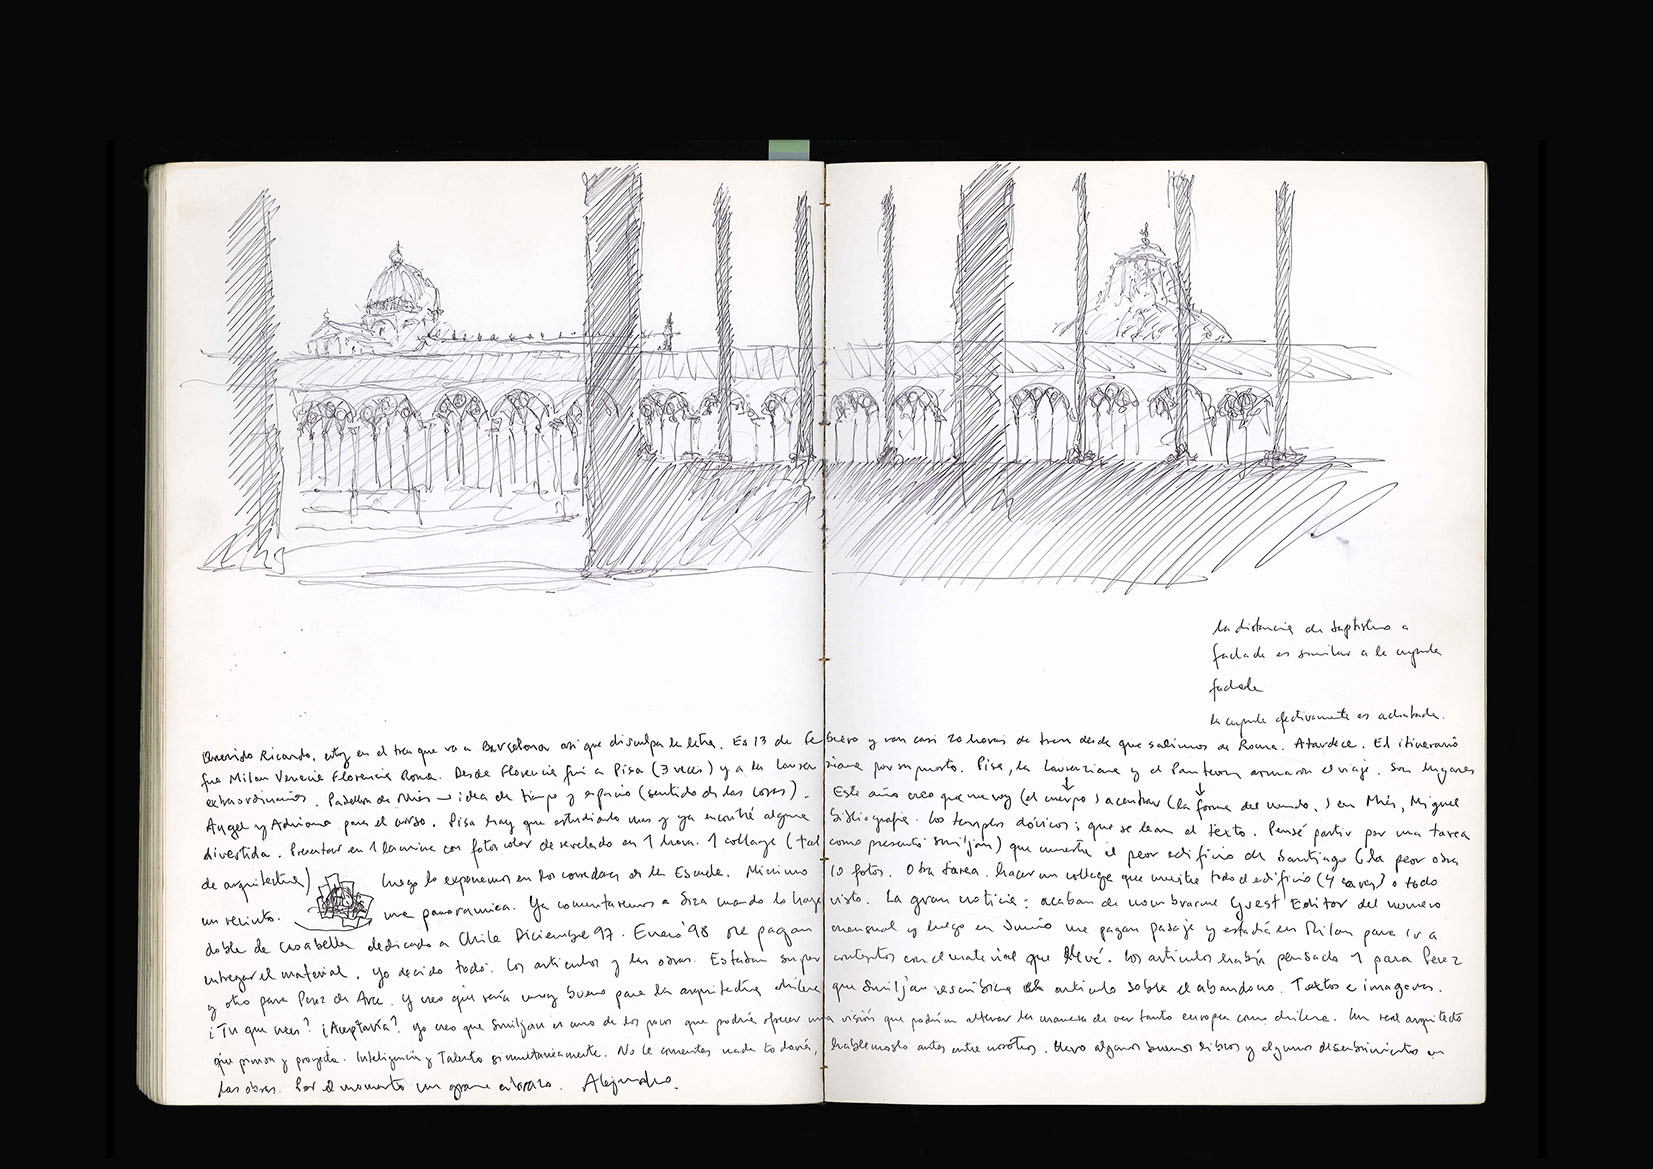 la distancia de baptisterio a
fachada es similar a la cupula
fachada
la cupula efectivamente es achatada.
Querido Ricardo, estoy en el tren que va a Barcelona asi que disculpa la letra. Es 13 de febrero y van casi 20 horas de tren desde que salimos de Roma. Atardece. El itinerario
fue Milan Venecia Florencia Roma. Desde Florencia fui a Pisa (3 veces) y a la Laurenziana por supuesto. Pisa, la Laurenziana y el Panteon armaron el viaje. Son lugares
extraordinarios. Pabellon de Mies → idea de tiempo y espacio (sentido de las cosas). Este año creo que me voy (el cuerpo) a centrar (la forma del mundo,) en Mies, Miguel
Angel y Adriano para el curso. Pisa hay que estudiarlo mas y ya encontré alguna bibliografia. Los templos dóricos; que se lean el texto. Pensé partir por una tarea
divertida. Presentar en 1 lamina con fotos color de revelado en 1 hora. 1 collage (tal como presentó Smiljan) que muestre el peor edificio de Santiago (la peor obra
de arquitectura) luego lo exponemos en los corredores de la Escuela. Minimo 10 fotos. Otra tarea. hacer un collage que muestre todo el edificio (4 caras) o todo
un recinto. una panoramica. Ya comentaremos a Siza cuando lo haya visto. La gran noticia: acaban de nombrarme Guest Editor del numero
doble de Casabella dedicado a Chile Diciembre 97. Enero 98 me pagan mensual y luego en Junio me pagan pasaje y estadia en Milan para ir a
entregar el material. Yo decido todo. Los articulos y las obras. Estaban super contentos con el material que llevé. los articulos habia pensado 1 para Perez
y otro para Perez de Arce. Y creo que seria muy bueno para la arquitectura chilena que Smiljan escribiera el articulo sobre el abandono. Textos e imagenes.
¿Tu que crees? ¿Aceptaria? Yo creo que Smiljan es uno de los pocos que podria ofrecer una visión que podrian alterar la manera de ver tanto europea como chilena. Un real arquitecto
que piensa y proyecta. Inteligencia y Talento simultaneamente. No le comentes nada todavia, hablemoslo antes entre nosotros. Llevo algunos buenos libros y algunos descubrimientos en
las obras. Por el momento un gran abrazo. Alejandro.